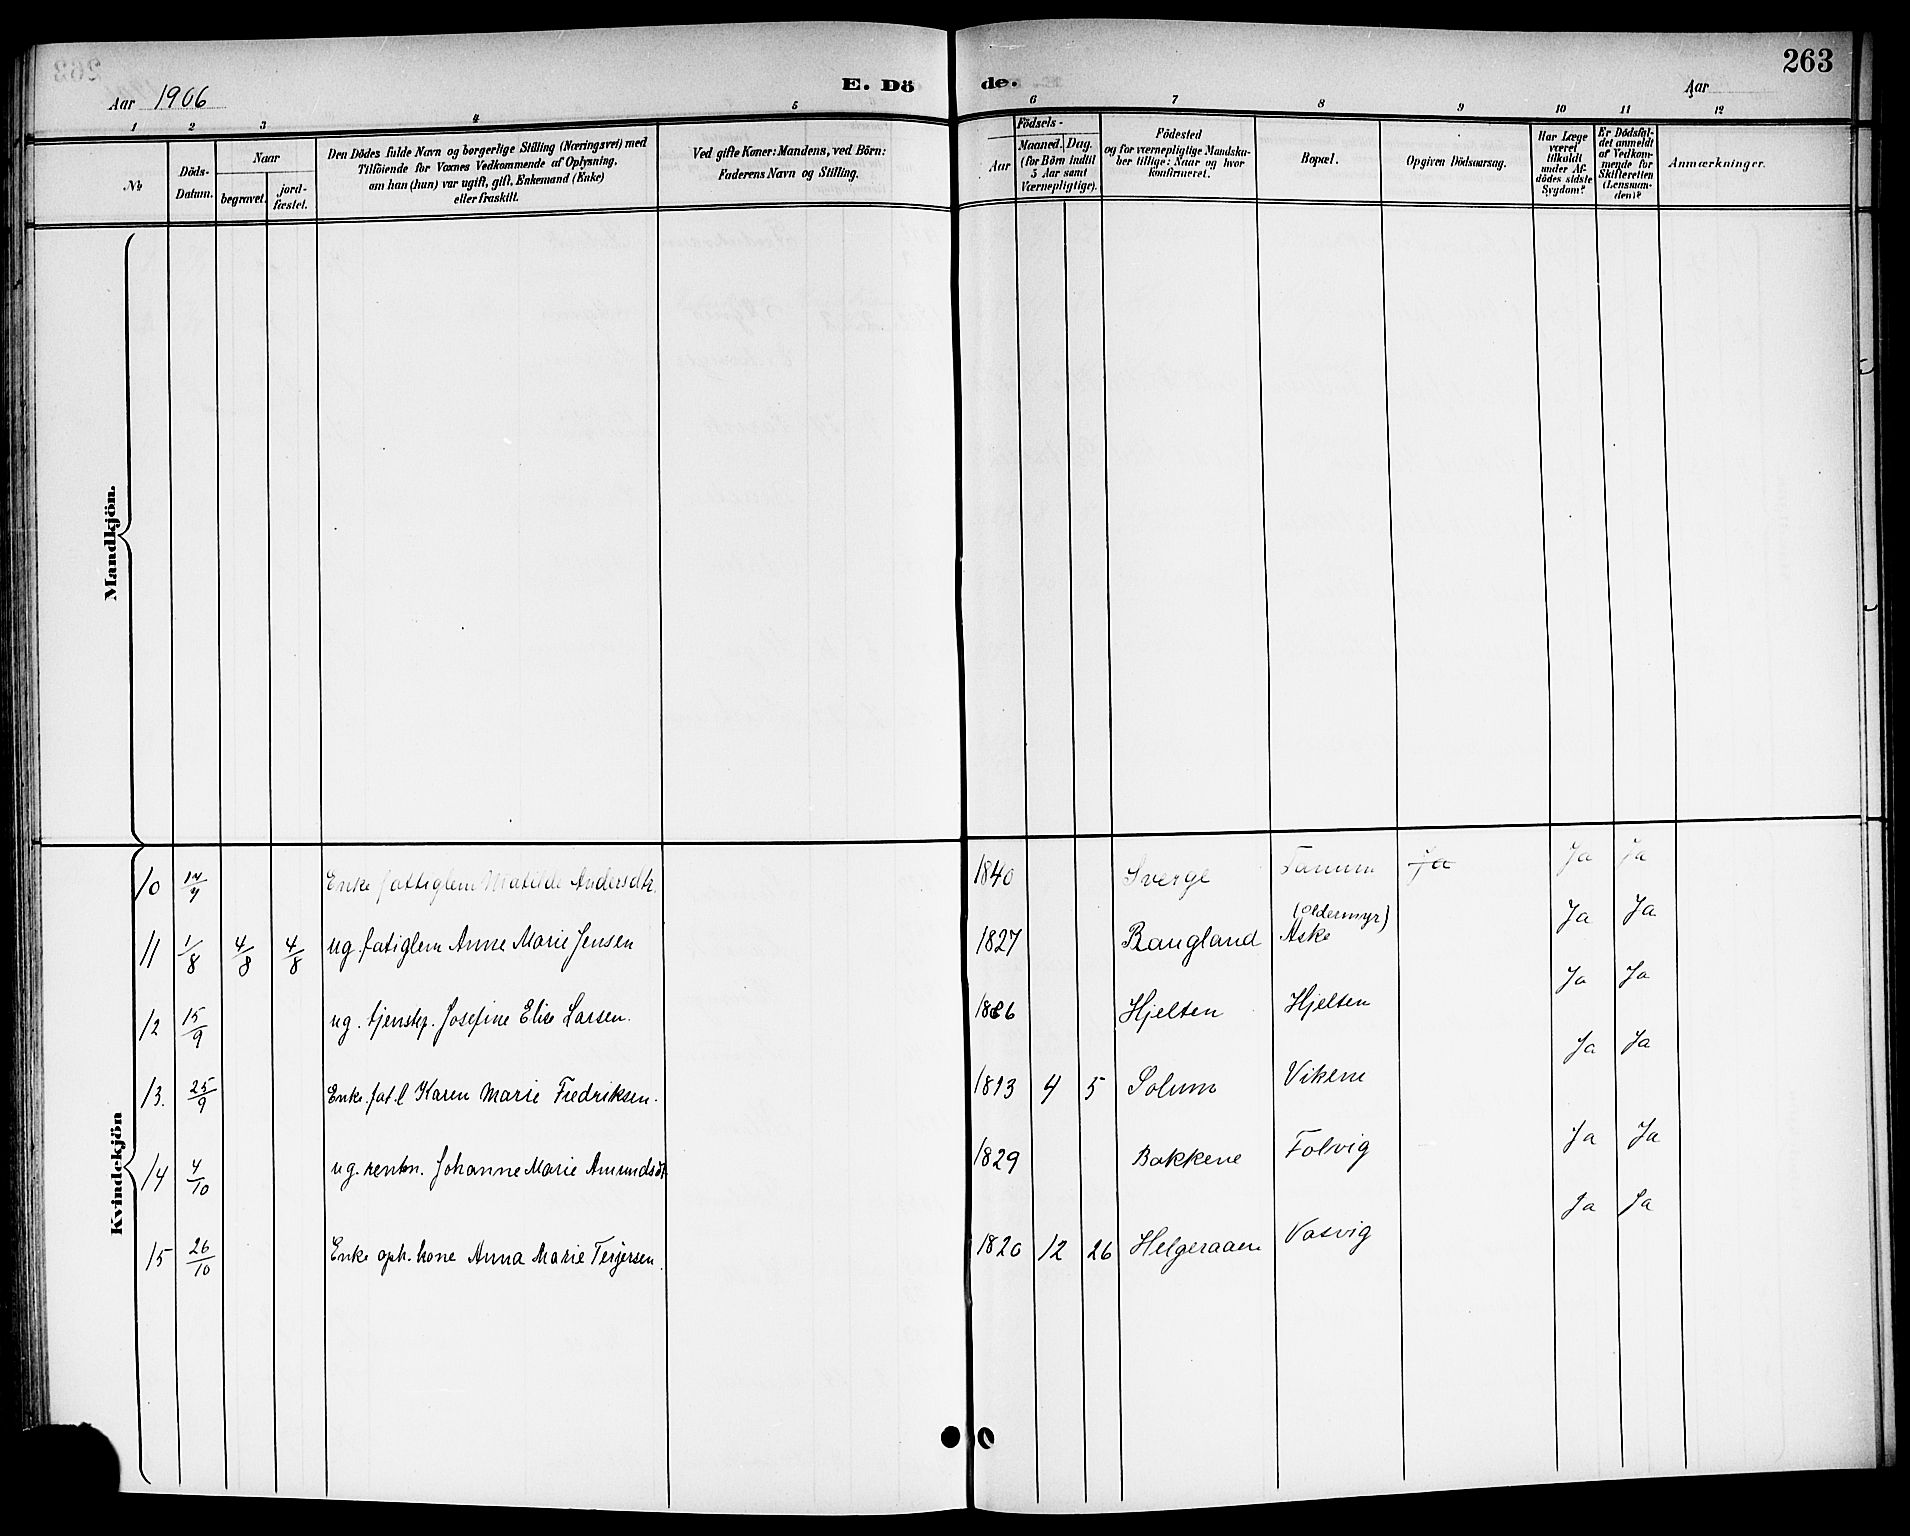 Aar 1906
E. Dö
de.
Aar
263
1 2 3 4 5 6 7 8 9 10 11 12
No
Döds-
Datum.
Naar
begravet.
jord-
fæstet.
Den Dödes fulde Navn og borgerlige Stilling (Næringsvei) med
Tilföiende for Voxnes Vedkommende af Oplysning,
om han (hun) var ugift, gift, Enkemand (Enke)
eller fraskilt.
Ved gifte Koner: Mandens, ved Börn:
Faderens Navn og Stilling.
Födsels-
Aar
Maaned. Dag.
(for Börn indtil
5 Aar samt
Værnepligtige).
Födested
og for værnepligtige Mandska-
ber tillige: Naar og hvor
konfirmeret.
Bopæl.
Opgiven Dödsaarsag.
Har Læge
været
tilkaldt
under Af-
dödes sidste
Sygdom?
Er Dödsfal-
det anmeldt
af Vedkom-
mende for
Skifteretten
(Lensman-
den)?
Anmærkninger.
Mandkjön.
Kvindekjön
10 14/7 Enke fattiglem Matilde Andersdtr. 1840 Sverge Tanum Ja Ja Ja
11 1/8 4/8 4/8 ug. fatiglem Anne Marie Jensen 1827 Raugland (Oldermyr) Aske Ja Ja
12 15/9 ug. tjenstp. Josefine Elise Larsen. Hjelten Hjelten Ja Ja
13. 25/9 Enke. fat.l Karen Marie Fredriksen. 1813 4 5 Solum Vikene Ja Ja
14 4/10 ug. rentn. Johanne Marie Amundsdt. 1829 Bakkene Folvig Ja Ja
15 26/10 Enke oph. kone Anna Marie Terjersen. 1820 12 26 Helgeraaen Vasvig Ja Ja